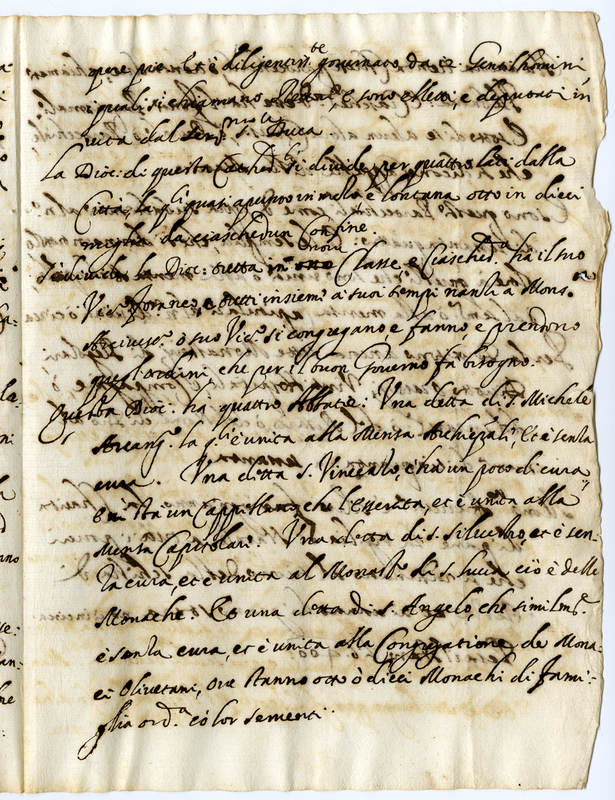 pere pie. Et è diligentiss.te governato da 12. Gentilhomini
quali si chiamano e sono eletti, e deputati in
vita dal Ser.mo S. Duca
La Dioc: di questa Cathed.l si divide per quattro lati dalla
Città, la q.l quasi apunto in melo è lontana otto in dieci
miglia da ciaschedun Confine.
Si divide la Dioc: detta in nove Classe, e Ciasched.a ha il suo
Vic.o foraneo, e detti insieme a suoi tempi nanti a Mons.r
Arcives.o ò suo Vic.o si congregano e fanno, e prendono
quegl'ordini che per il buon Governo fa bisogno.
Questa Dioc: ha quattro Abbatie. Una detta di S. Michele
Arcang.o la q.l è unita alla Mensa Archiep.ali, et è senla
cura. Una detta S. Vincenlo, ch'ha un poco di cura
e vi sta un Cappellano, che l'esercita, et è unita alla
Mensa Capitolare. Una detta di S. Silvestro, et è sen-
la cura, et è unita al Monast.o di S. Lucia ciò è delle
Monache. Et una detta di S. Angelo, che similm.te
è senla cura, et è unita alla Congregatione de Mona-
ci Olivetani, ove stanno otto ò dieci Monachi di fami-
glia ord.a co lor